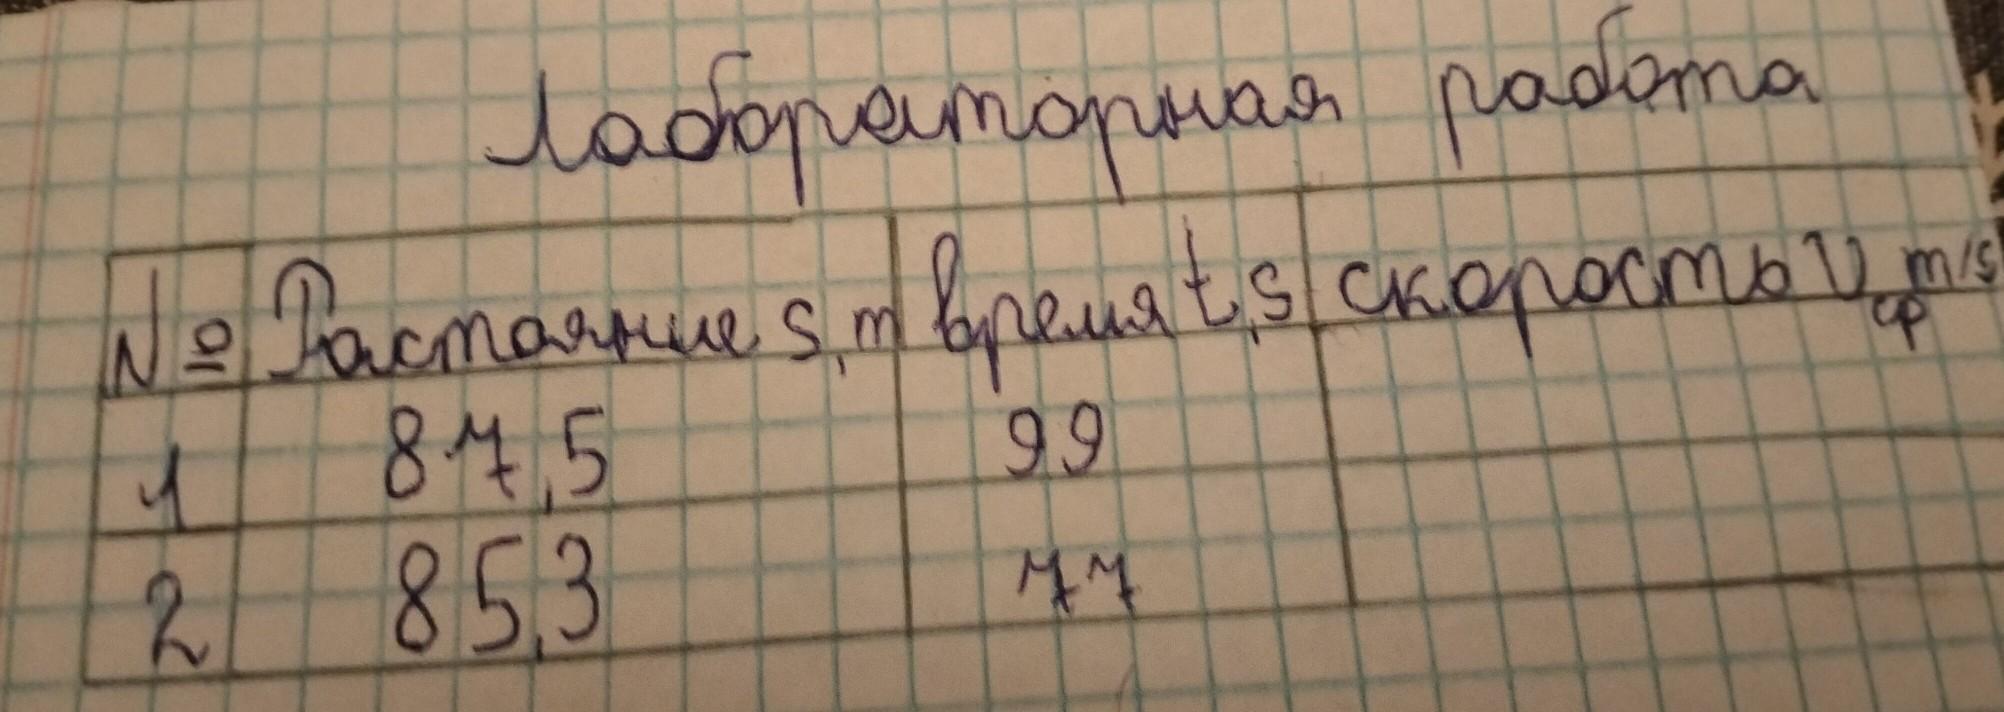 Лабораторная работа
№ Растояние s, m время t, s скорость υср m/s
1 87,5 99
2 85,3 77